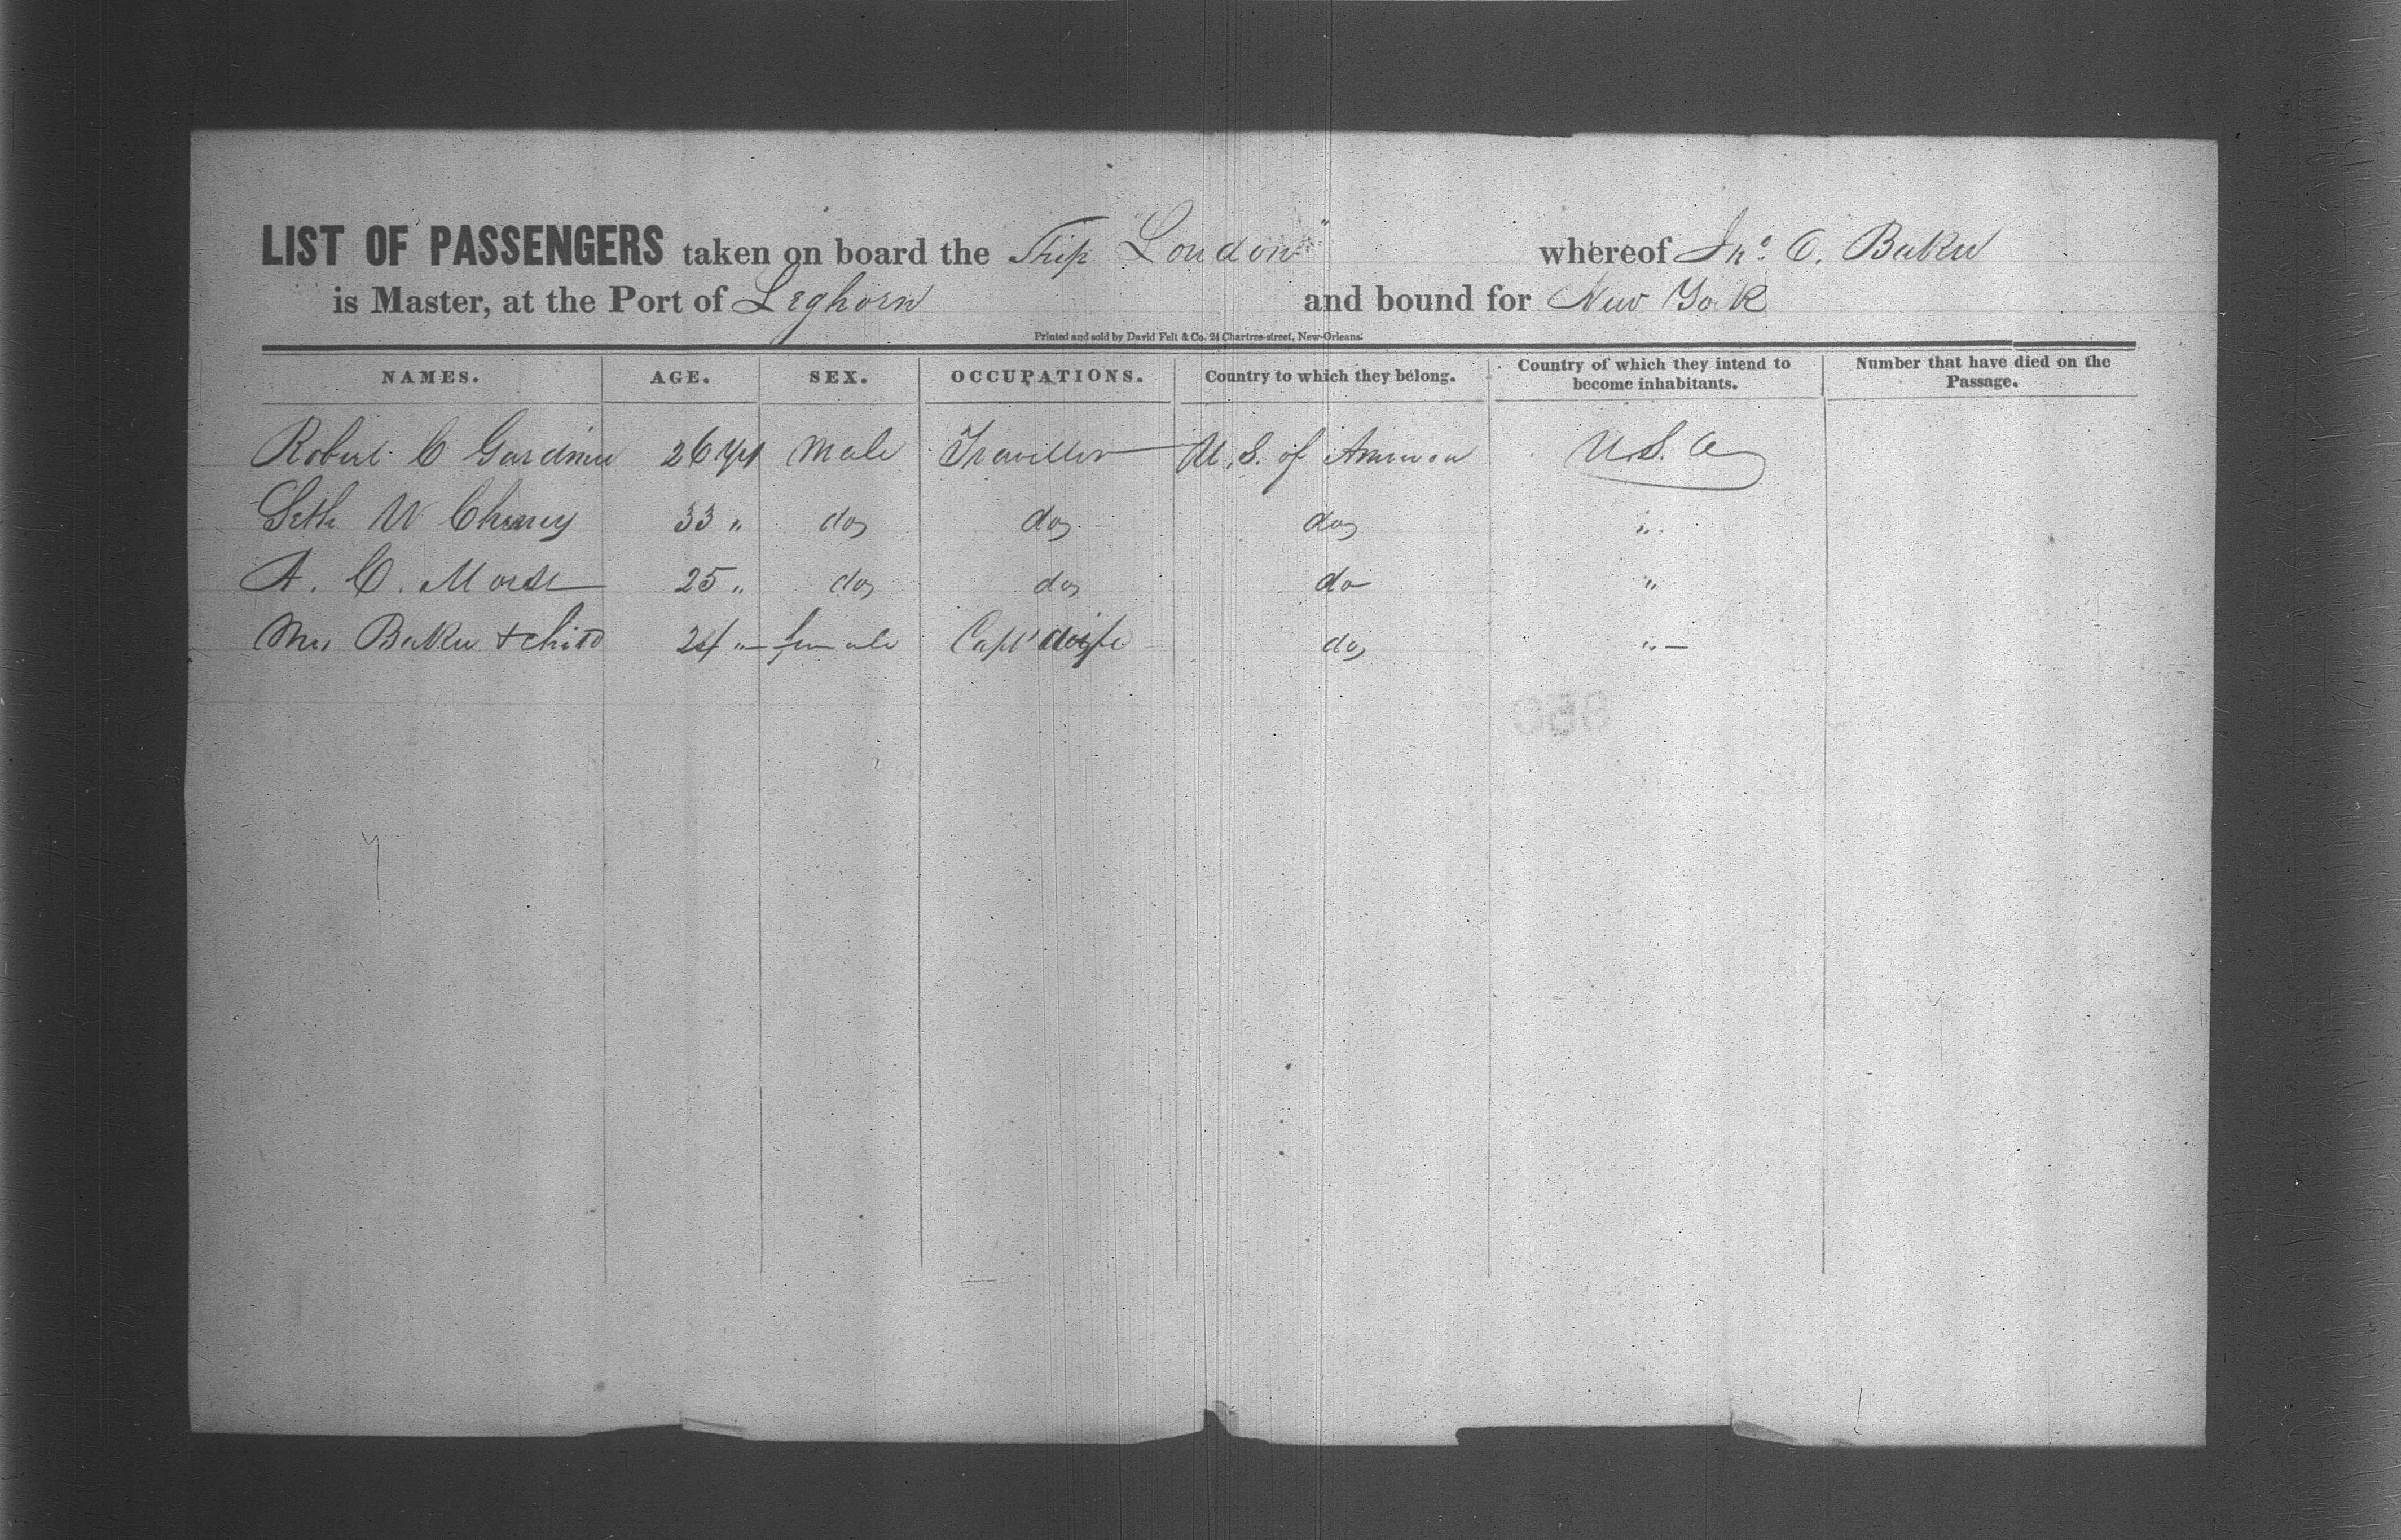 LIST OF PASSENGERS taken on board the Ship "London" whereof Jno. C. Baker
is Master, at the Port of Leghorn and bound for New York
Printed and sold by David Felt & Co. 24 Chartres-street, New-Orleans.
NAMES. AGE. SEX. OCCUPATIONS. Country to which they belong. Country of which they intend to become inhabitants. Number that have died on the Passage.
Robert C Gardiner 26 yrs Male Traveller U. S. of America U. S. A
Seth W Cheney 33 " do do do "
A. C. Morse 25 " do do do "
Mrs Baker & child 24 " female Capt wife do "
850